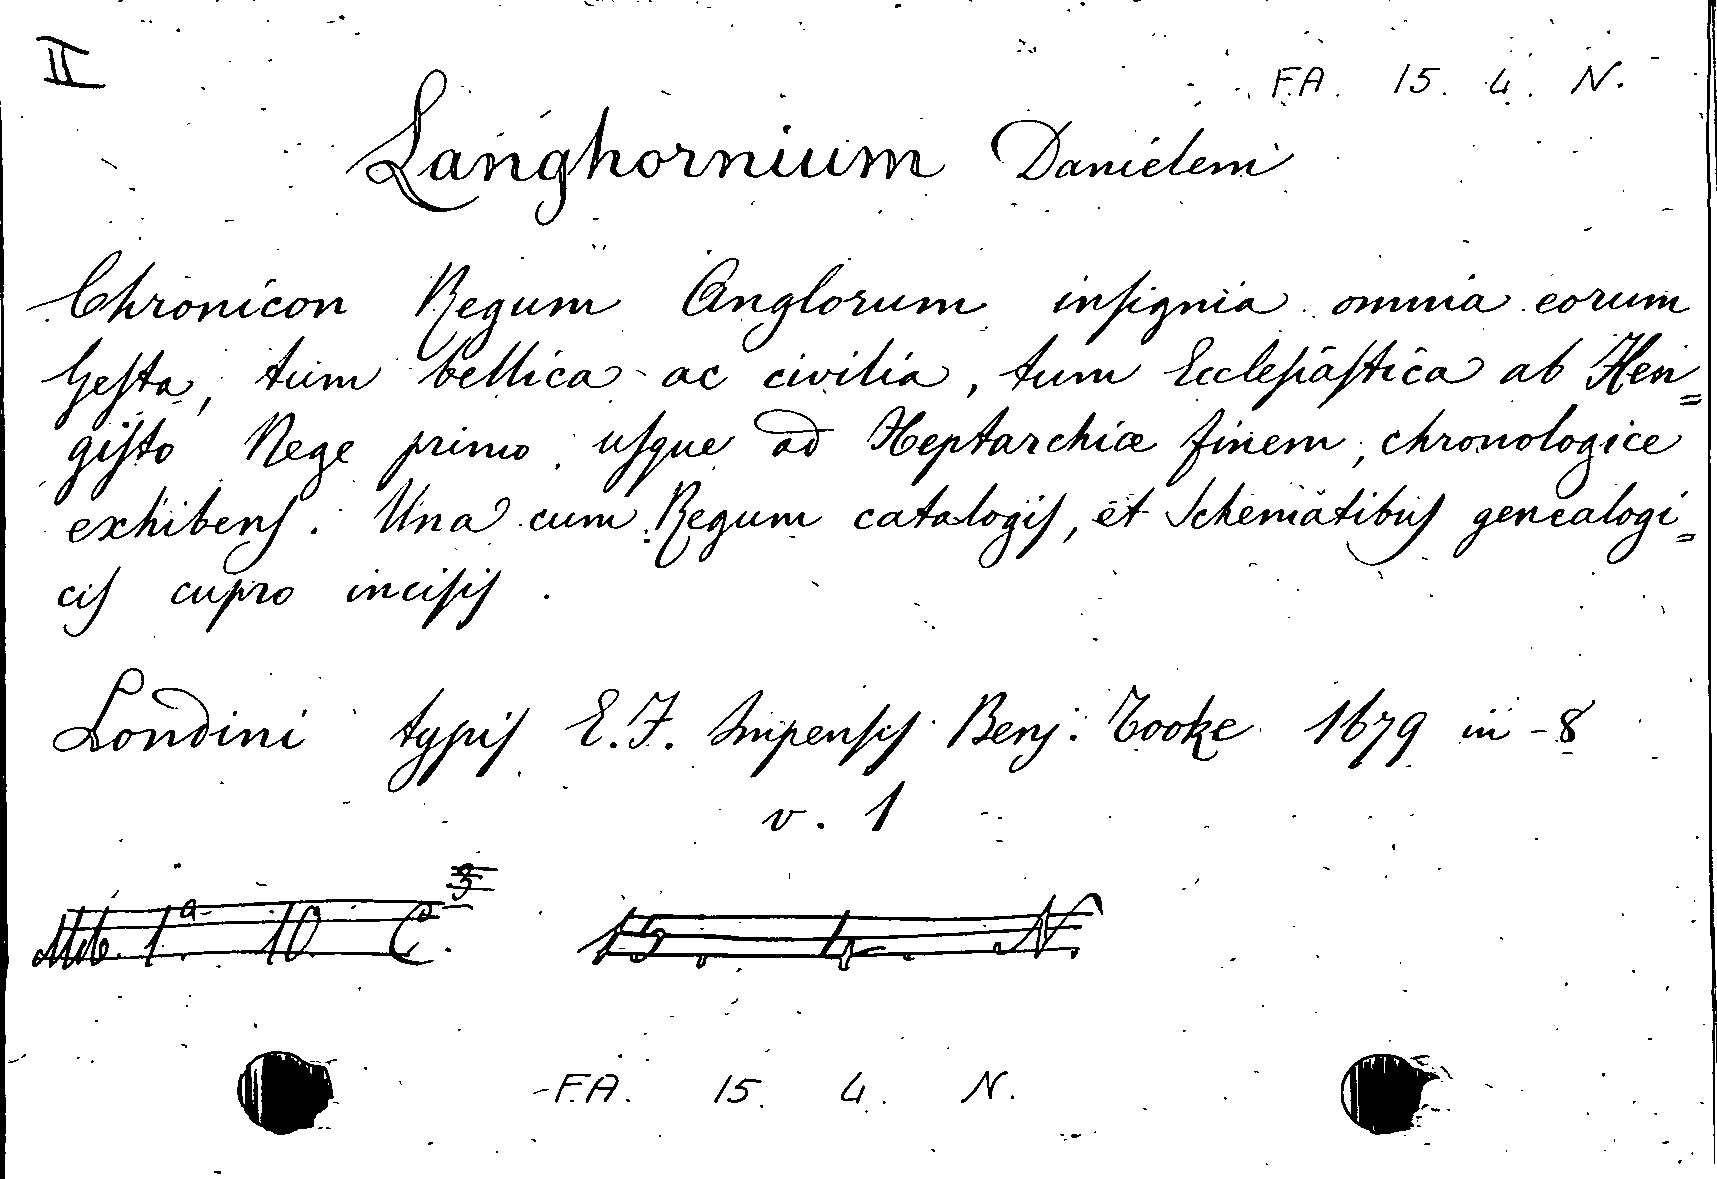 II
F.A. 15. 4. N.
Langhornium Danielem
Chronicon Regum Anglorum insignia omnia eorum
Gesta, tum bellica ac civilia, tum Ecclesiastica ab Hen=
gisto Rege primo, usque ad Heptarchiæ finem, chronologice
exhibens. Una cum Regum catalogis, et Schematibus genealogi=
cis cupro incisis.
Londini typis E.F. Impensis Benj. Tooke 1679 in-8
v. 1
15. 4. N.
F.A. 15. 4. N.